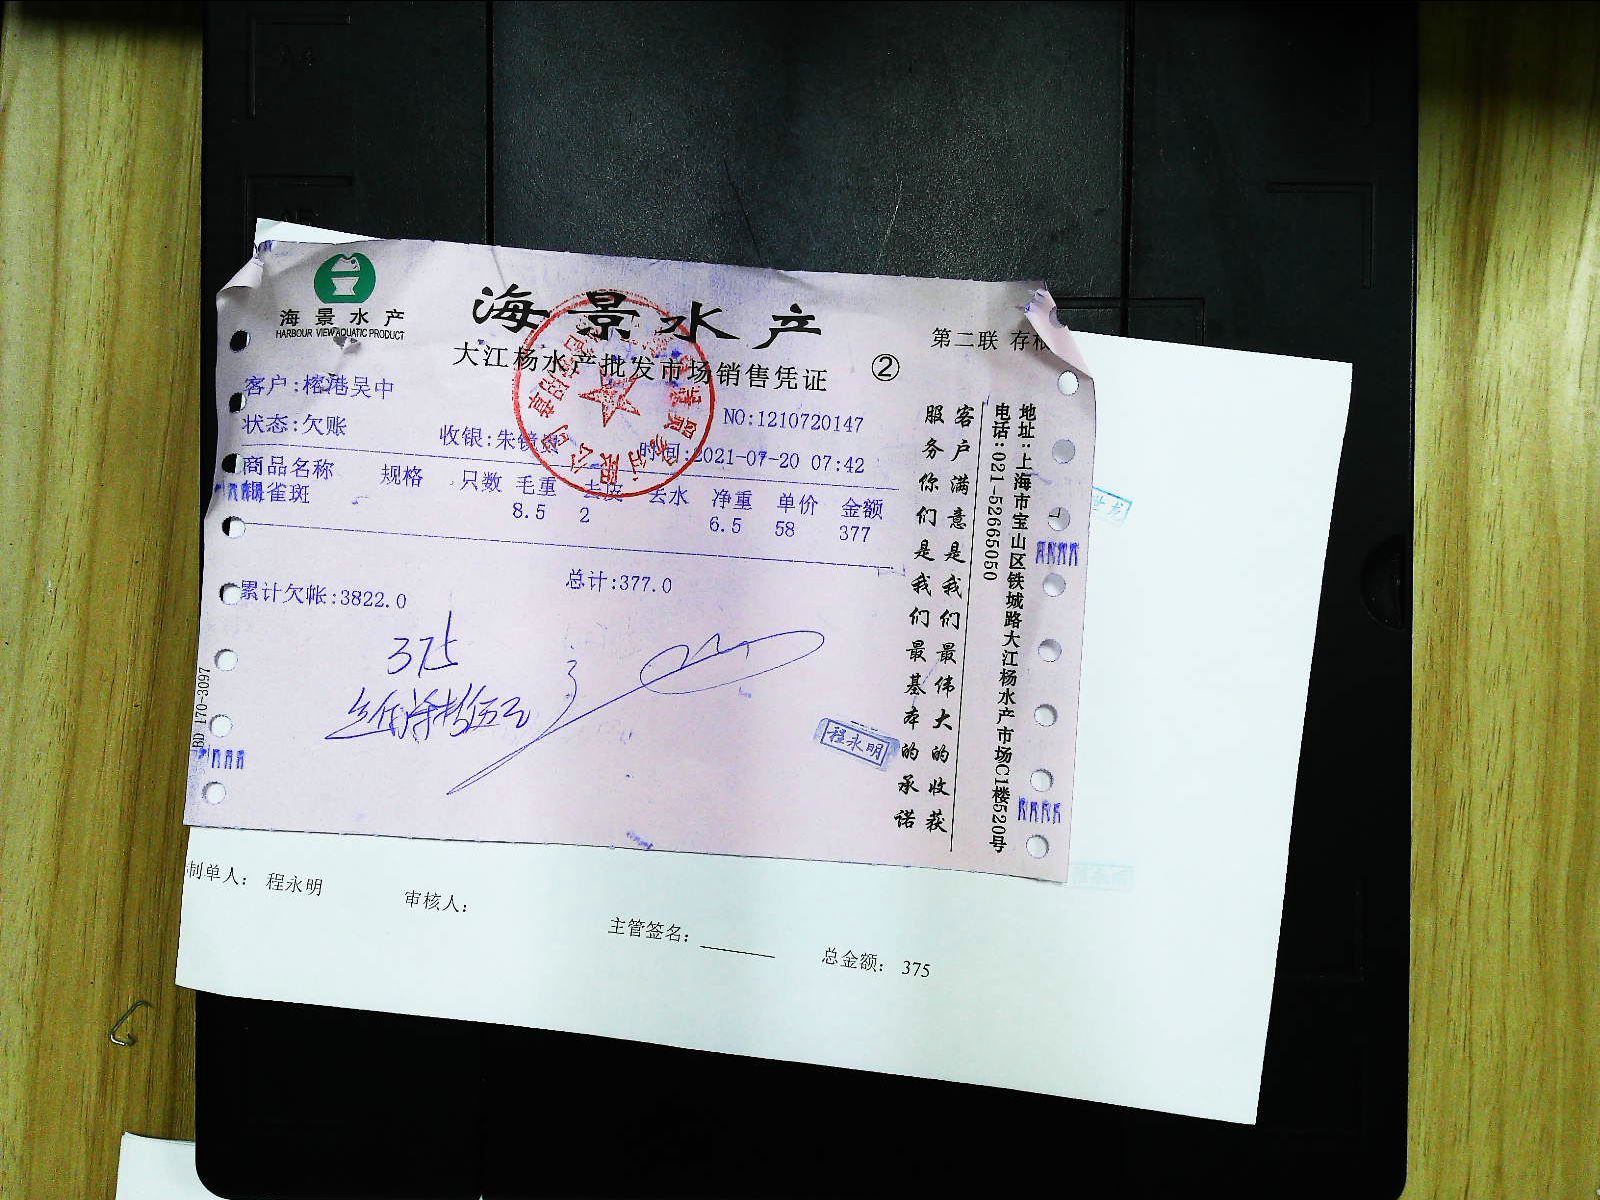 海景水产
HARBOUR VIEW AQUATIC PRODUCT
海景水产
大江杨水产批发市场销售凭证
②
第二联 存根
客户:榕港吴中
NO:1210720147
状态:欠账
收银:朱镜
时间:2021-07-20 07:42
商品名称 规格 只数 毛重 去皮 去水 净重 单价 金额
雀斑 8.5 2 6.5 58 377
总计:377.0
累计欠帐:3822.0
375
程永明
BD 170-3097
客户满意是我们最伟大的收获
服务你们是我们最基本的承诺
地址:上海市宝山区铁城路大江杨水产市场C1楼520号
电话:021-52665050
世龙
制单人: 程永明
审核人:
主管签名:
总金额: 375